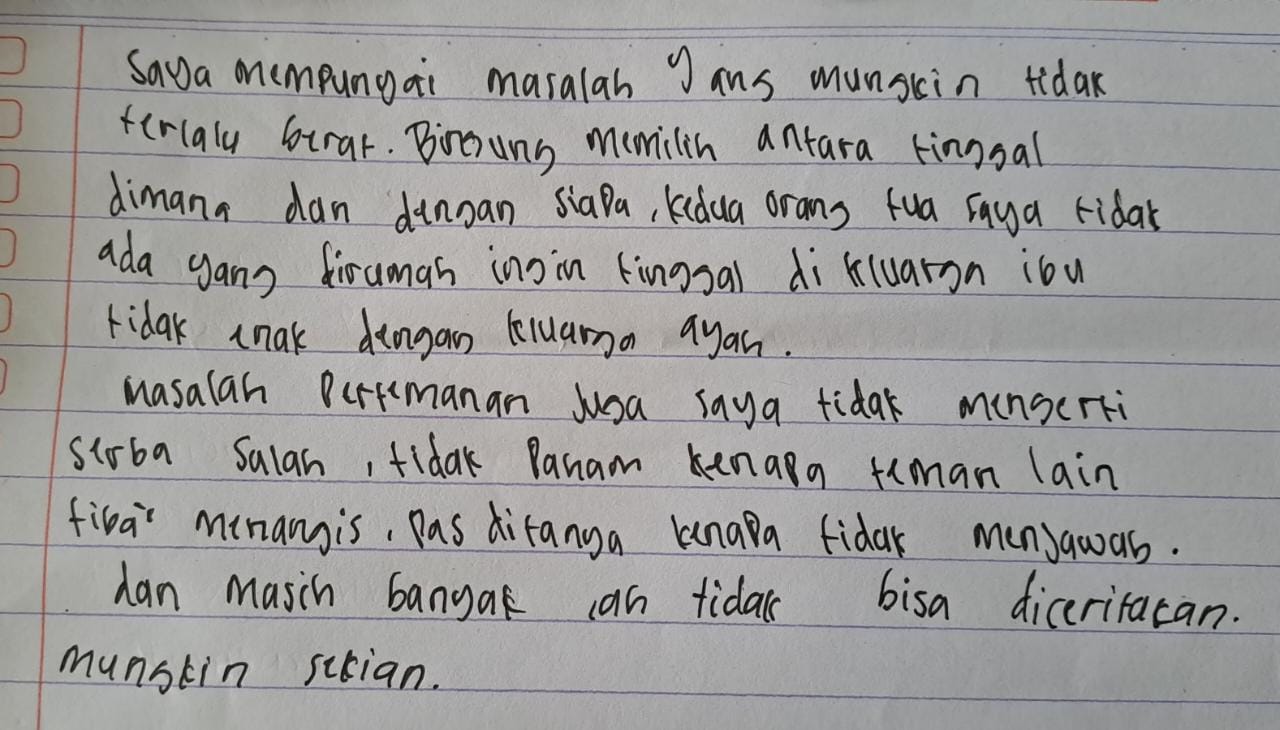 Saya mempunyai masalah yang mungkin tidak
terlalu berat. Bingung memilih antara tinggal
dimana dan dengan siapa, kedua orang tua saya tidak
ada yang dirumah ingin tinggal di kluarga ibu
tidak enak dengan kluarga ayah.
masalah pertemanan Juga saya tidak mengerti
serba salah, tidak paham kenapa teman lain
tiba² menangis, pas ditanya kenapa tidak menjawab.
dan masih banyak lah tidak bisa diceritakan.
mungkin sekian.